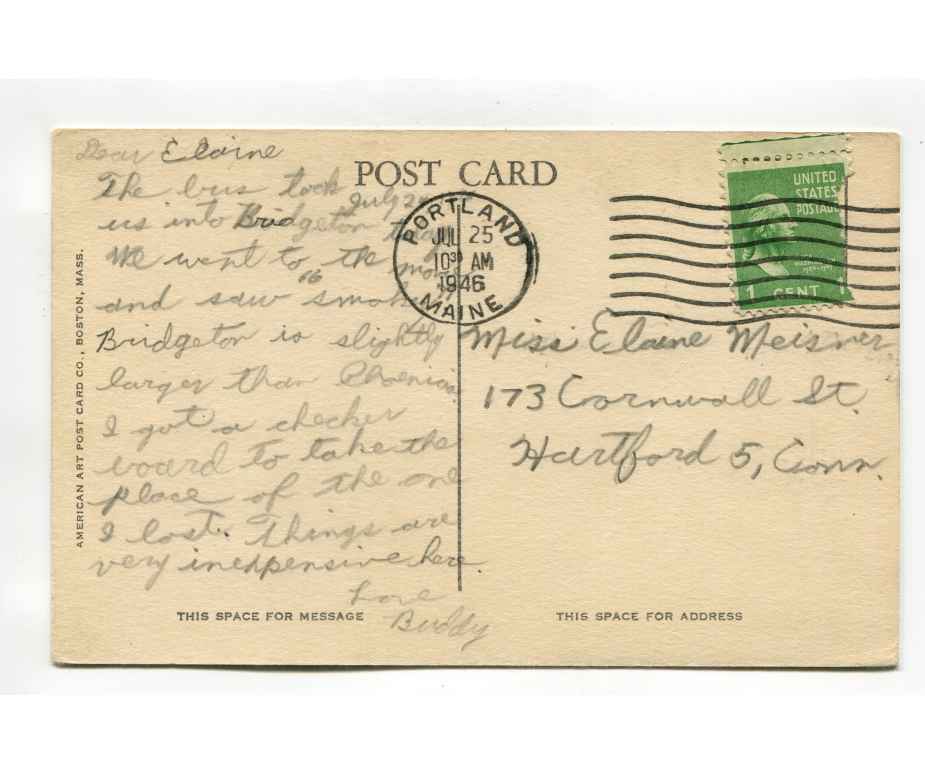 Dear Elaine
POST CARD
The bus took
July
us into Bridgeton
We went to the
and saw "Smoky"
Bridgeton is slightly
larger than Phoenix
I got a checker
board to take the
place of the one
I lost. Things are
very inexpensive here
Love
Buddy
THIS SPACE FOR MESSAGE
AMERICAN ART POST CARD CO., BOSTON, MASS.
PORTLAND
JUL 25
10 30 AM
1946
MAINE
UNITED
STATES
POSTAGE
1 CENT 1
Miss Elaine Meisner
173 Cornwall St.
Hartford 5, Conn.
THIS SPACE FOR ADDRESS